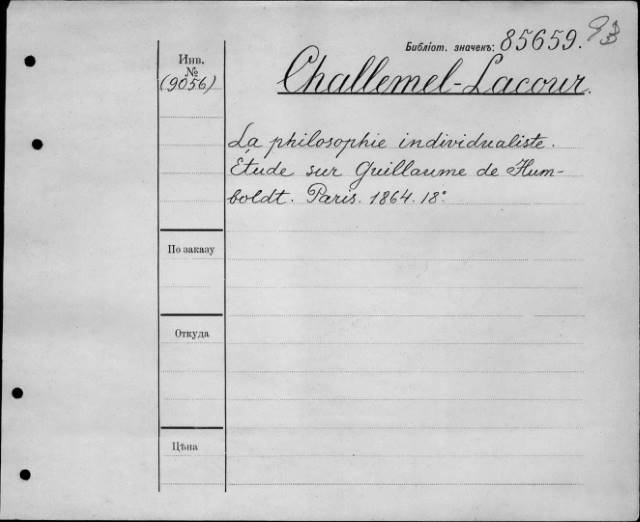 Библіот. значекъ: 85659.
Инв.
№
(9056)
Challemel-Lacour.
La philosophie individualiste.
Étude sur Guillaume de Hum-
boldt. Paris. 1864. 18°
По заказу
Откуда
Цѣна